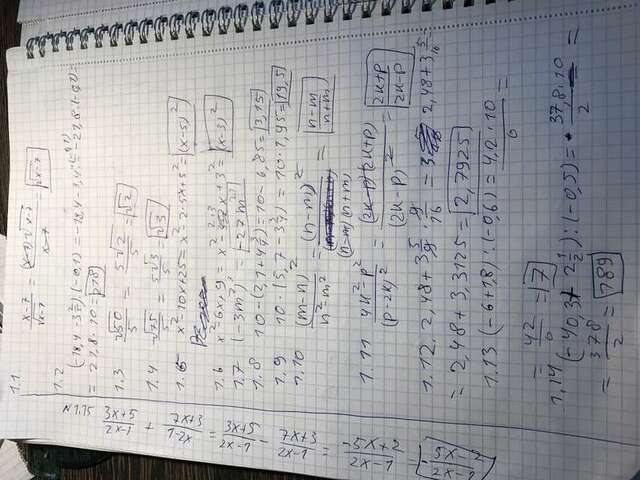 1.1. x-7/√x-7 = (x-7)√x-7/x-7 = √x-7
1.2
(-18,4 - 3 2/5) : (-0,1) =
= 21,8 · 10 = 218
1.3 √50/5 = 5√2/5 = √2
1.4 √75/5 = 5√3/5 = √3
1.5 x²-10x+25 = x²-2·5x+5² = (x-5)²
1.6 x²-6x+9 = x²-2·3x+3² = (x-3)²
1.7 (-3m²)³ = -27m
1.8 10-(2,1+4 3/4) = 10-6,85 = 3,15
1.9 10·(5,7-3 3/4) = 10·1,95 = 19,5
1.10 (m-n)²/n²-m² = (n-m)²/(n-m)(n+m) = n-m/n+m
1.11 4k²-p²/(p-2k)² = (2k-p)(2k+p)/(2k-p)² = 2k+p/2k-p
1.12. 2,48+3 5/9 · 9/16 = 2,48+3 5/16 =
= 2,48+3,3125 = 2,7925
1.13 (-6+1,8):(-0,6) = 4,2·10/6 =
= 42/6 = 7
1.14 (-40,3+2 1/2):(-0,5) = 37,8·10/2 =
= 378/2 = 189
N1.15
3x+5/2x-1 + 7x+3/1-2x = 3x+5/2x-1 - 7x+3/2x-1 = -5x+2/2x-1 = -5x-2/2x-1